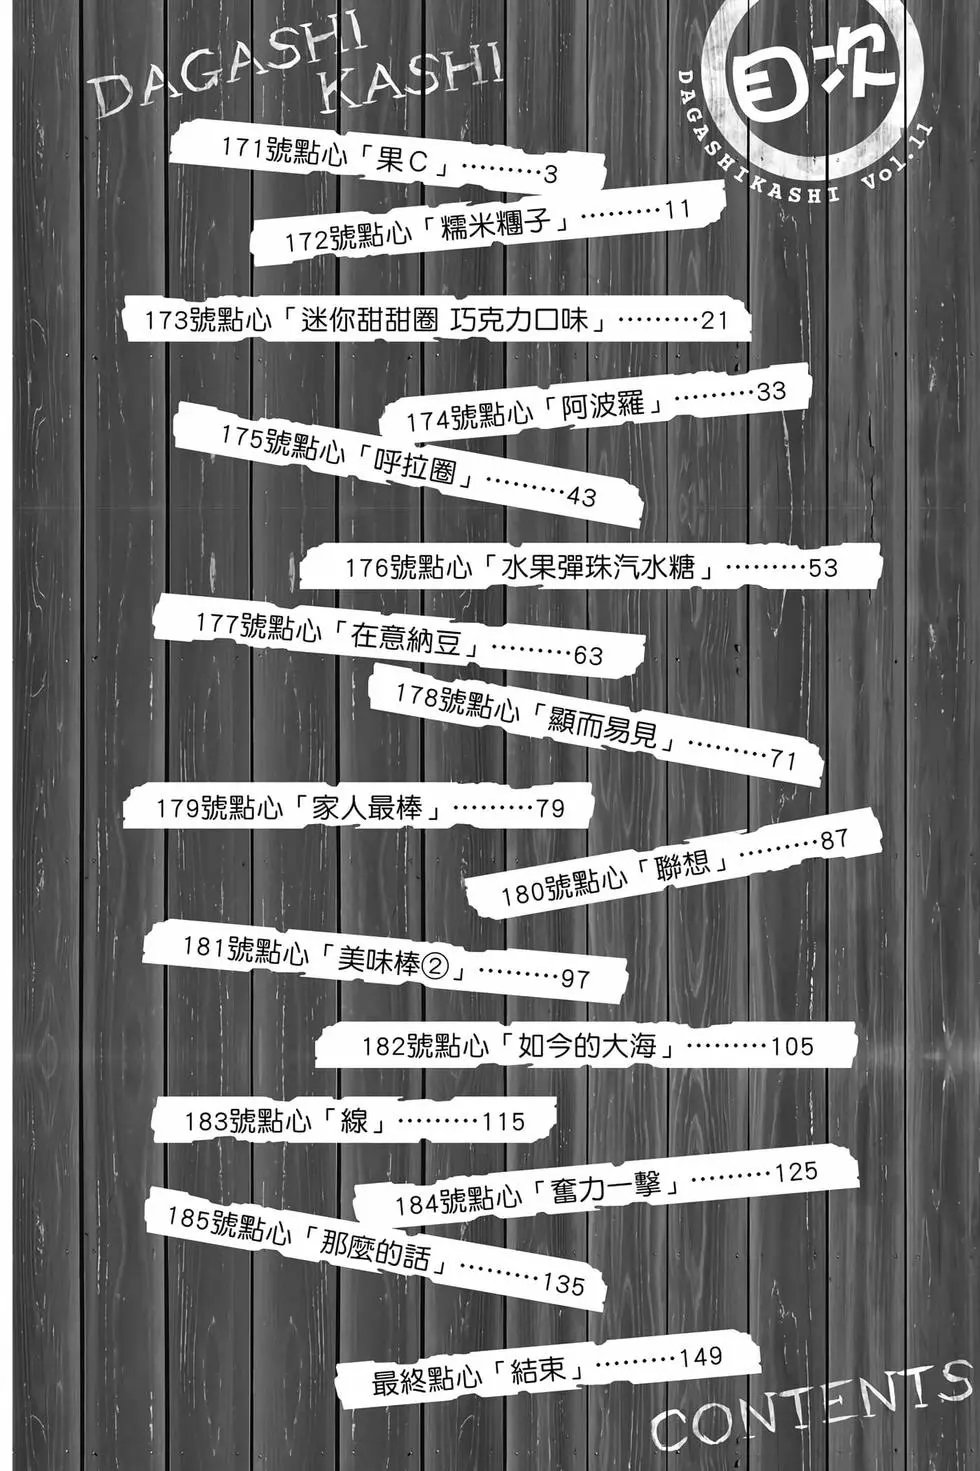 DAGASHI
KASHI
目次
DAGASHIKASHI Vol.11
171號點心「果C」………3
172號點心「糯米糰子」………11
173號點心「迷你甜甜圈 巧克力口味」………21
174號點心「阿波羅」………33
175號點心「呼拉圈」………43
176號點心「水果彈珠汽水糖」………53
177號點心「在意納豆」………63
178號點心「顯而易見」………71
179號點心「家人最棒」………79
180號點心「聯想」………87
181號點心「美味棒②」………97
182號點心「如今的大海」………105
183號點心「線」………115
184號點心「奮力一擊」………125
185號點心「那麼的話」………135
最終點心「結束」………149
CONTENTS